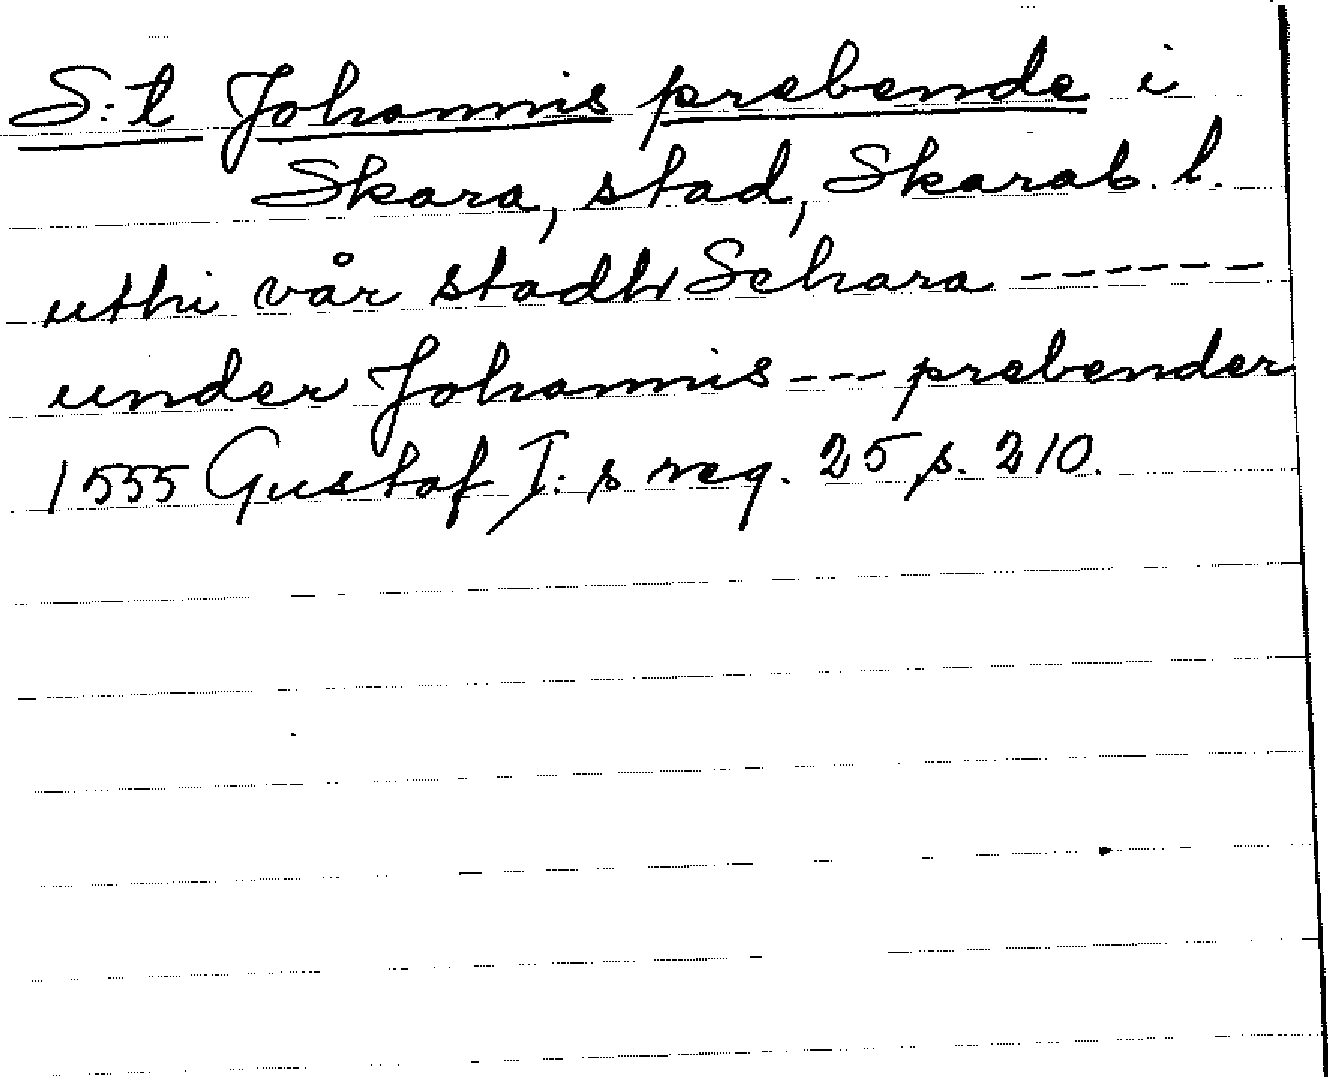 S:t Johannis prebende i
Skara, stad, Skarab. l.
uthi vår stadh Schara ------
under Johannis --- prebender
1555 Gustaf I:s reg. 25, s. 210.